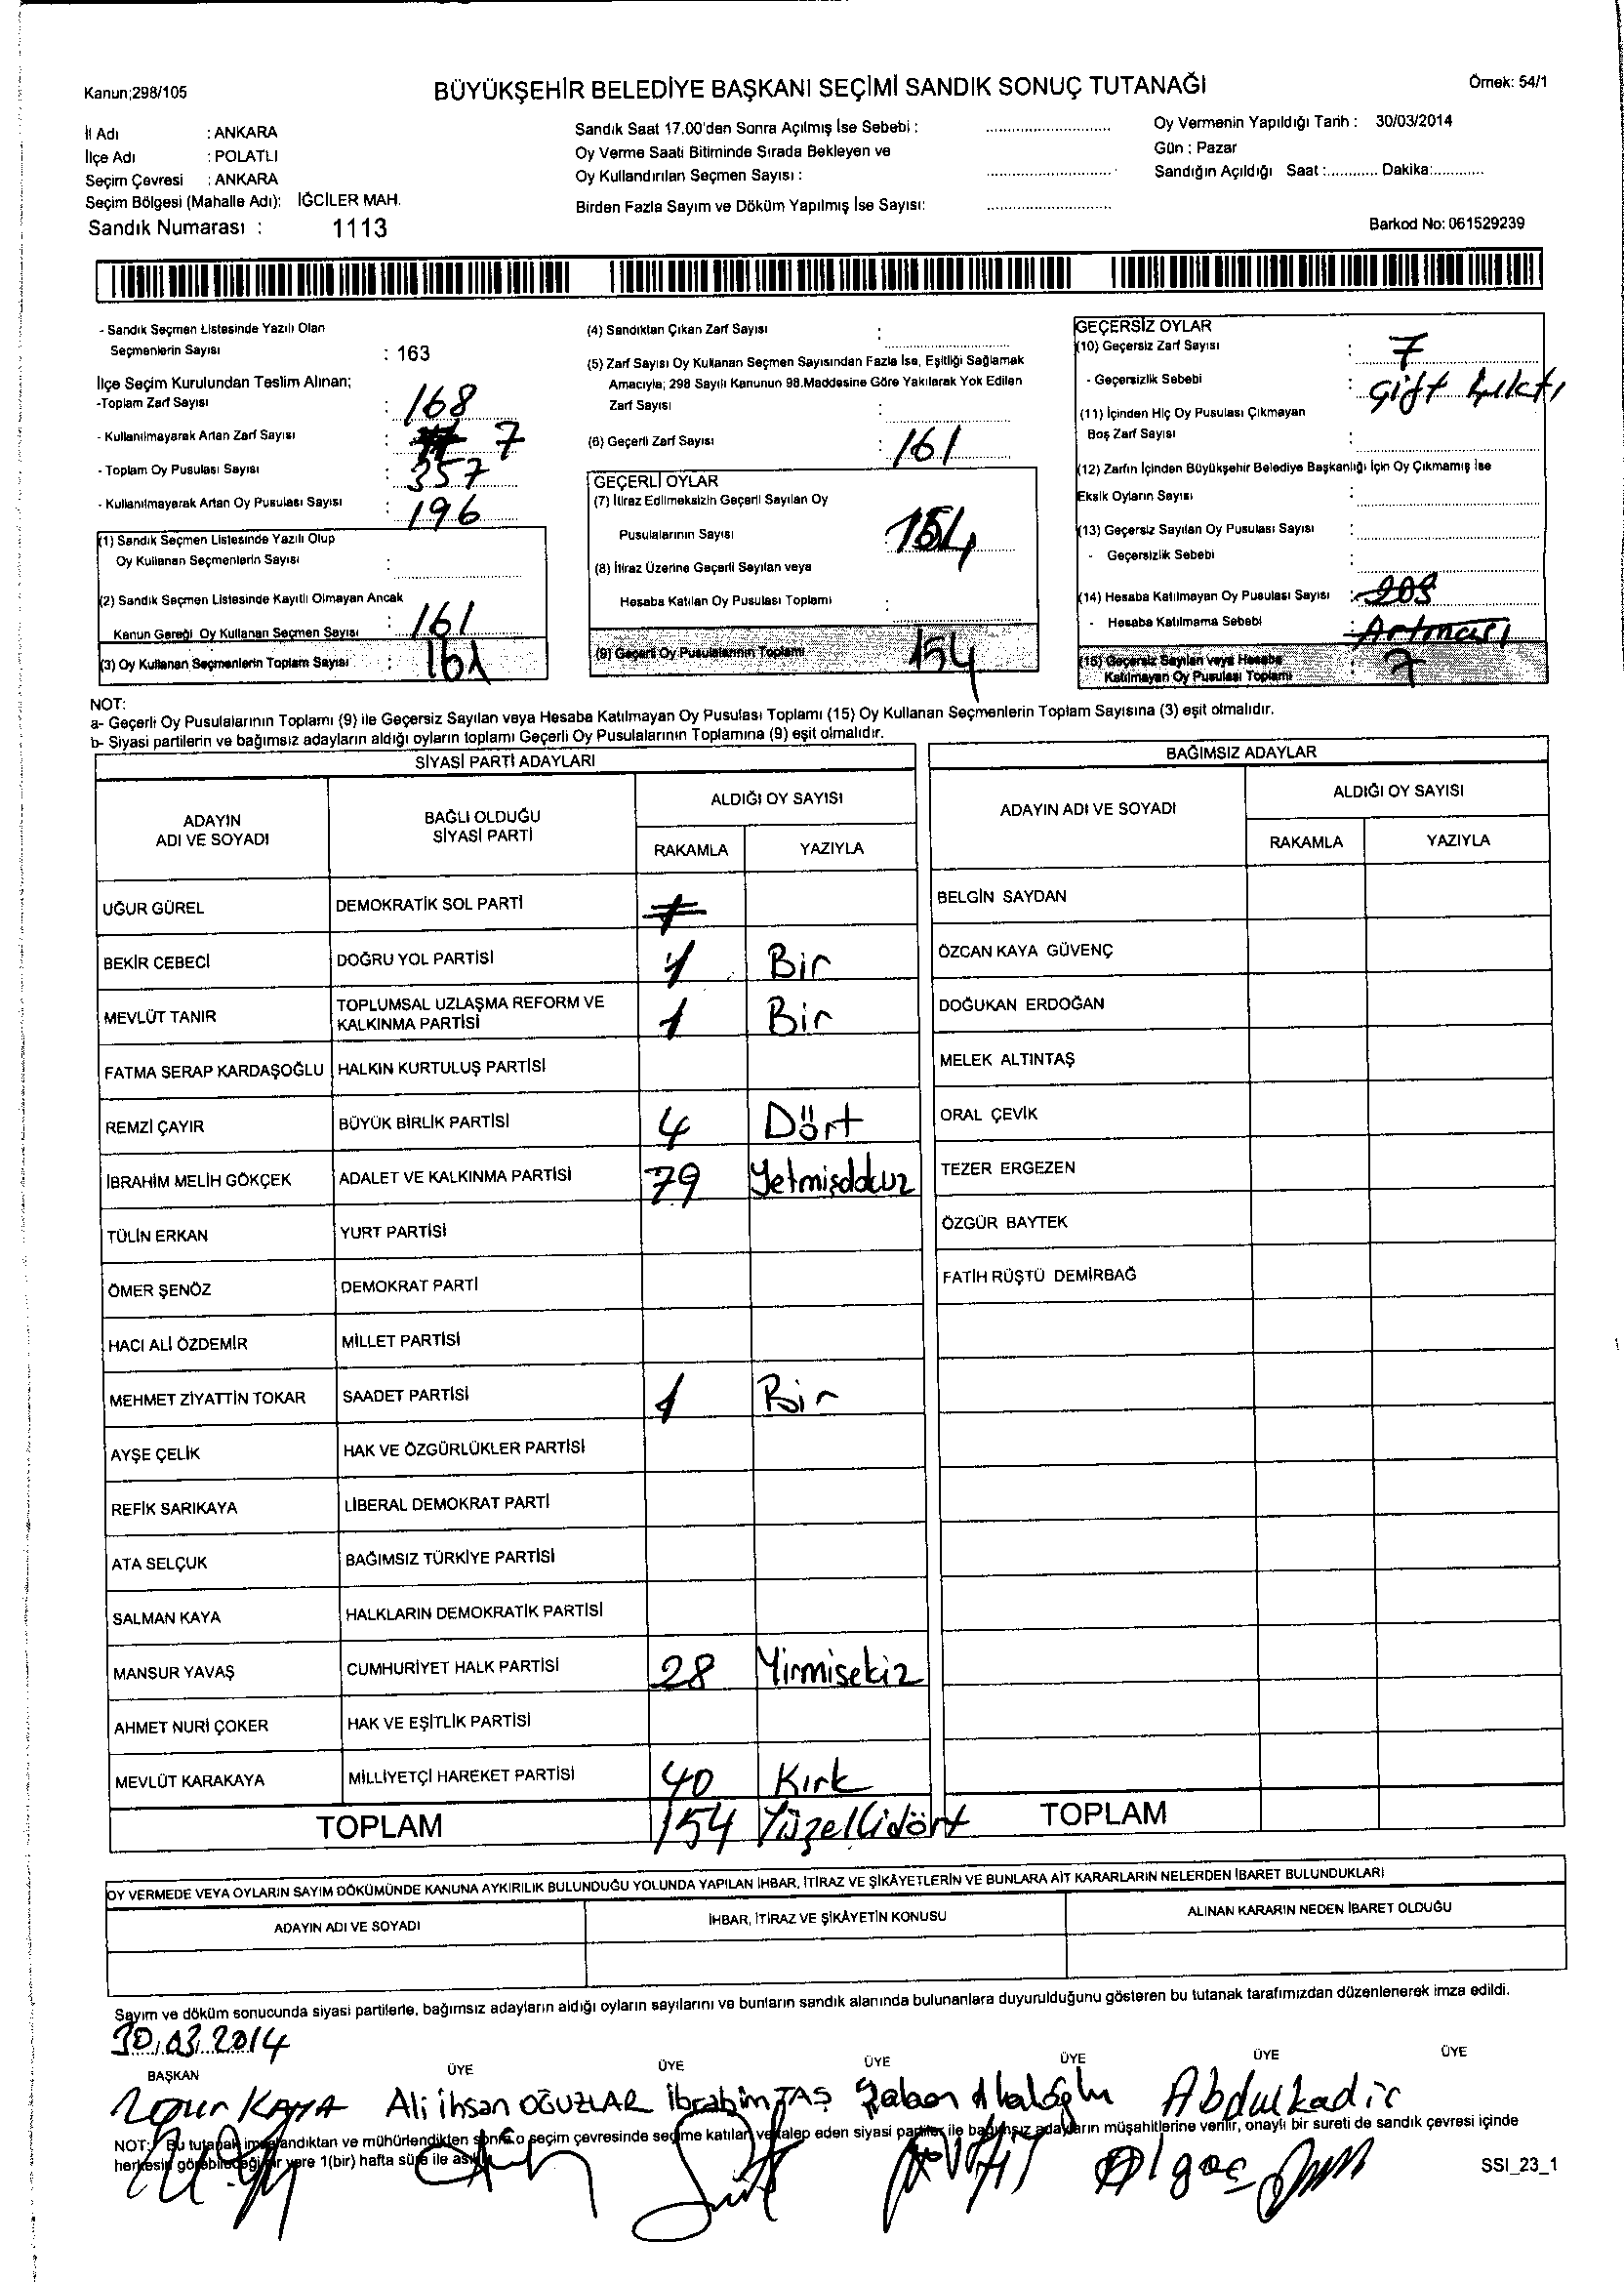 Kanun;298/105
BÜYÜKŞEHİR BELEDİYE BAŞKANI SEÇİMİ SANDIK SONUÇ TUTANAĞI
Örnek: 54/1
İl Adı : ANKARA
İlçe Adı : POLATLI
Seçim Çevresi : ANKARA
Seçim Bölgesi (Mahalle Adı): İĞCİLER MAH.
Sandık Numarası : 1113
Sandık Saat 17.00'den Sonra Açılmış İse Sebebi :
Oy Verme Saati Bitiminde Sırada Bekleyen ve
Oy Kullandırılan Seçmen Sayısı :
Birden Fazla Sayım ve Döküm Yapılmış İse Sayısı:
Oy Vermenin Yapıldığı Tarih : 30/03/2014
Gün : Pazar
Sandığın Açıldığı Saat :............ Dakika:............
Barkod No: 061529239
- Sandık Seçmen Listesinde Yazılı Olan
Seçmenlerin Sayısı : 163
İlçe Seçim Kurulundan Teslim Alınan;
-Toplam Zarf Sayısı : 168
- Kullanılmayarak Artan Zarf Sayısı : 7
- Toplam Oy Pusulası Sayısı : 357
- Kullanılmayarak Artan Oy Pusulası Sayısı : 196
(1) Sandık Seçmen Listesinde Yazılı Olup
Oy Kullanan Seçmenlerin Sayısı :
(2) Sandık Seçmen Listesinde Kayıtlı Olmayan Ancak
Kanun Gereği Oy Kullanan Seçmen Sayısı : 161
(3) Oy Kullanan Seçmenlerin Toplam Sayısı : 161
(4) Sandıktan Çıkan Zarf Sayısı :
(5) Zarf Sayısı Oy Kullanan Seçmen Sayısından Fazla İse, Eşitliği Sağlamak
Amacıyla; 298 Sayılı Kanunun 98.Maddesine Göre Yakılarak Yok Edilen
Zarf Sayısı :
(6) Geçerli Zarf Sayısı : 161
GEÇERLİ OYLAR
(7) İtiraz Edilmeksizin Geçerli Sayılan Oy
Pusulalarının Sayısı : 154
(8) İtiraz Üzerine Geçerli Sayılan veya
Hesaba Katılan Oy Pusulası Toplamı :
(9) Geçerli Oy Pusulalarının Toplamı 154
GEÇERSİZ OYLAR
(10) Geçersiz Zarf Sayısı : 7
- Geçersizlik Sebebi : Çift Çıktı
(11) İçinden Hiç Oy Pusulası Çıkmayan
Boş Zarf Sayısı :
(12) Zarfın İçinden Büyükşehir Belediye Başkanlığı İçin Oy Çıkmamış İse
Eksik Oyların Sayısı :
(13) Geçersiz Sayılan Oy Pusulası Sayısı :
- Geçersizlik Sebebi :
(14) Hesaba Katılmayan Oy Pusulası Sayısı :
- Hesaba Katılmama Sebebi : Artması
(15) Geçersiz Sayılan veya Hesaba
Katılmayan Oy Pusulası Toplamı : 7
NOT:
a- Geçerli Oy Pusulalarının Toplamı (9) ile Geçersiz Sayılan veya Hesaba Katılmayan Oy Pusulası Toplamı (15) Oy Kullanan Seçmenlerin Toplam Sayısına (3) eşit olmalıdır.
b- Siyasi partilerin ve bağımsız adayların aldığı oyların toplamı Geçerli Oy Pusulalarının Toplamına (9) eşit olmalıdır.
SİYASİ PARTİ ADAYLARI
ADAYIN ADI VE SOYADI
BAĞLI OLDUĞU SİYASİ PARTİ
ALDIĞI OY SAYISI
RAKAMLA YAZIYLA
UĞUR GÜREL DEMOKRATİK SOL PARTİ
BEKİR CEBECİ DOĞRU YOL PARTİSİ 1 Bir
MEVLÜT TANIR TOPLUMSAL UZLAŞMA REFORM VE KALKINMA PARTİSİ 1 Bir
FATMA SERAP KARDAŞOĞLU HALKIN KURTULUŞ PARTİSİ
REMZİ ÇAYIR BÜYÜK BİRLİK PARTİSİ 4 Dört
İBRAHİM MELİH GÖKÇEK ADALET VE KALKINMA PARTİSİ 79 Yetmişdokuz
TÜLİN ERKAN YURT PARTİSİ
ÖMER ŞENÖZ DEMOKRAT PARTİ
HACI ALİ ÖZDEMİR MİLLET PARTİSİ
MEHMET ZİYATTİN TOKAR SAADET PARTİSİ 1 Bir
AYŞE ÇELİK HAK VE ÖZGÜRLÜKLER PARTİSİ
REFİK SARIKAYA LİBERAL DEMOKRAT PARTİ
ATA SELÇUK BAĞIMSIZ TÜRKİYE PARTİSİ
SALMAN KAYA HALKLARIN DEMOKRATİK PARTİSİ
MANSUR YAVAŞ CUMHURİYET HALK PARTİSİ 28 Yirmisekiz
AHMET NURİ ÇOKER HAK VE EŞİTLİK PARTİSİ
MEVLÜT KARAKAYA MİLLİYETÇİ HAREKET PARTİSİ 40 Kırk
TOPLAM 154 Yüzellidört
BAĞIMSIZ ADAYLAR
ADAYIN ADI VE SOYADI
ALDIĞI OY SAYISI
RAKAMLA YAZIYLA
BELGİN SAYDAN
ÖZCAN KAYA GÜVENÇ
DOĞUKAN ERDOĞAN
MELEK ALTINTAŞ
ORAL ÇEVİK
TEZER ERGEZEN
ÖZGÜR BAYTEK
FATİH RÜŞTÜ DEMİRBAĞ
TOPLAM
OY VERMEDE VEYA OYLARIN SAYIM DÖKÜMÜNDE KANUNA AYKIRILIK BULUNDUĞU YOLUNDA YAPILAN İHBAR, İTİRAZ VE ŞİKÂYETLERİN VE BUNLARA AİT KARARLARIN NELERDEN İBARET BULUNDUKLARI
ADAYIN ADI VE SOYADI İHBAR, İTİRAZ VE ŞİKÂYETİN KONUSU ALINAN KARARIN NEDEN İBARET OLDUĞU
Sayım ve döküm sonucunda siyasi partilerle, bağımsız adayların aldığı oyların sayılarını ve bunların sandık alanında bulunanlara duyurulduğunu gösteren bu tutanak tarafımızdan düzenlenerek imza edildi.
30.03.2014
BAŞKAN ÜYE ÜYE ÜYE ÜYE ÜYE ÜYE
KAYA Ali ihsan OĞUZLAR İbrahim TAŞ Şaban Abdulkadir
NOT: Bu tutanak imzalandıktan ve mühürlendikten sonra o seçim çevresinde seçime katılan ve talep eden siyasi partiler ile bağımsız adayların müşahitlerine verilir, onaylı bir sureti de sandık çevresi içinde
herkesin görebileceği bir yere 1(bir) hafta süre ile asılır.
SSI_23_1